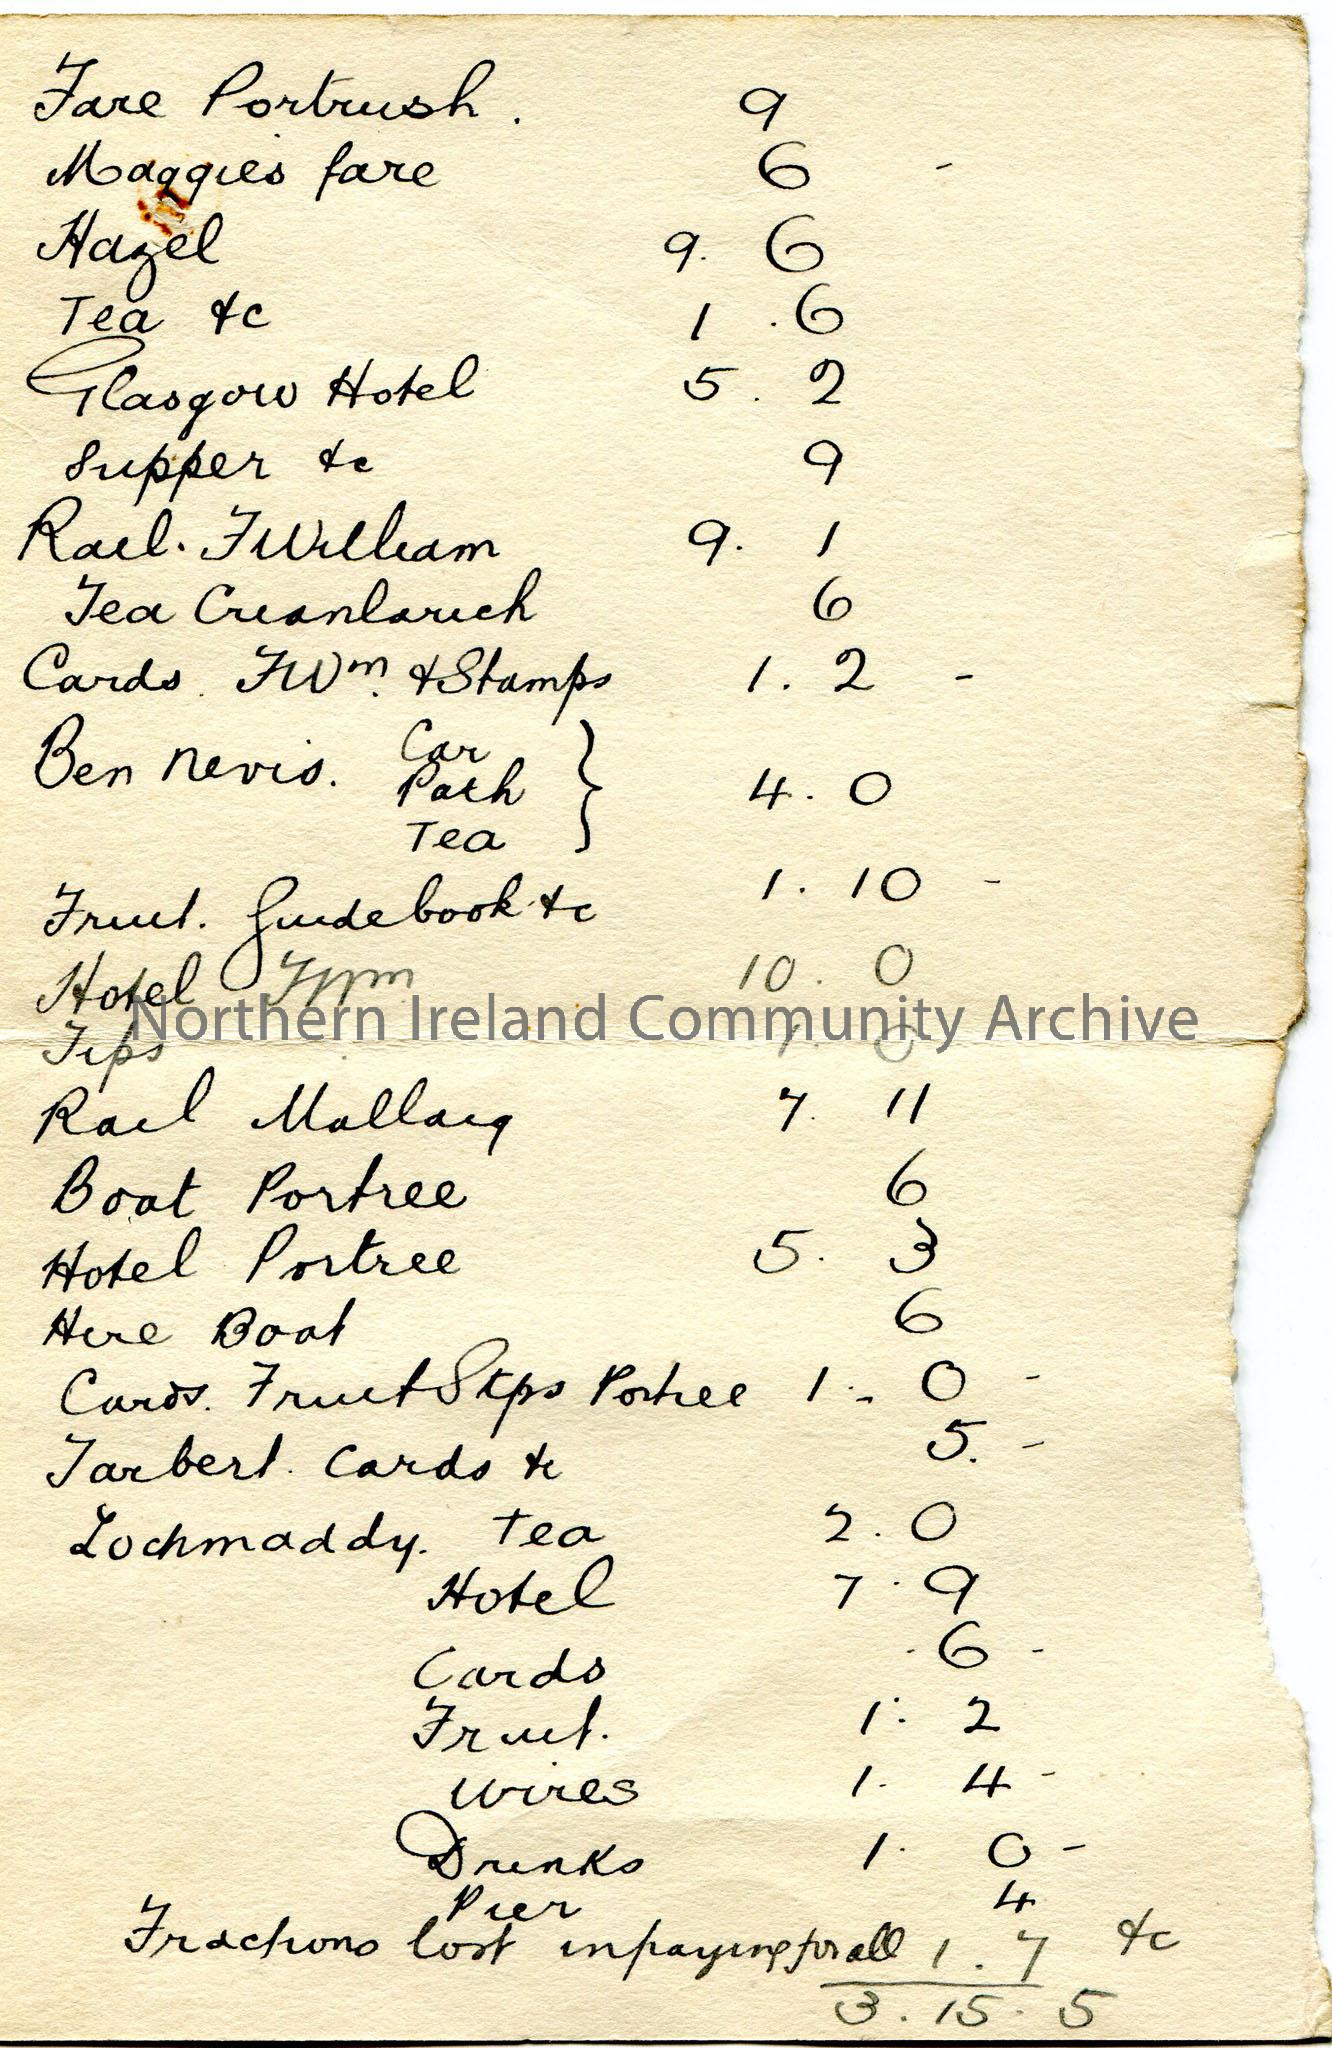 Fare Portrush. 9
Maggies fare 6 -
Hazel 9. 6
Tea &c 1 . 6
Glasgow Hotel 5 . 2
Supper &c 9
Rail. FWilliam 9. 1
Tea Crianlarich 6
Cards. FWm. & Stamps 1. 2 -
Ben Nevis. Car
Path } 4. 0
Tea
Fruit. Guidebook &c 1. 10 -
Hotel 10. 0
Northern Ireland Community Archive
Tips 1. 0
Rail Mallaig 7. 11
Boat Portree 6
Hotel Portree 5. 3
Hire Boat 6
Cards. Fruit Stps Portree 1 - 0 -
Tarbert. Cards &c 5. -
Lochmaddy. Tea 2. 0
Hotel 7. 9
Cards . 6 -
Fruit. 1. 2
Wires 1. 4 -
Drinks 1. 0 -
Pier 4
Fractions lost in paying for all 1 . 7 &c
3. 15. 5